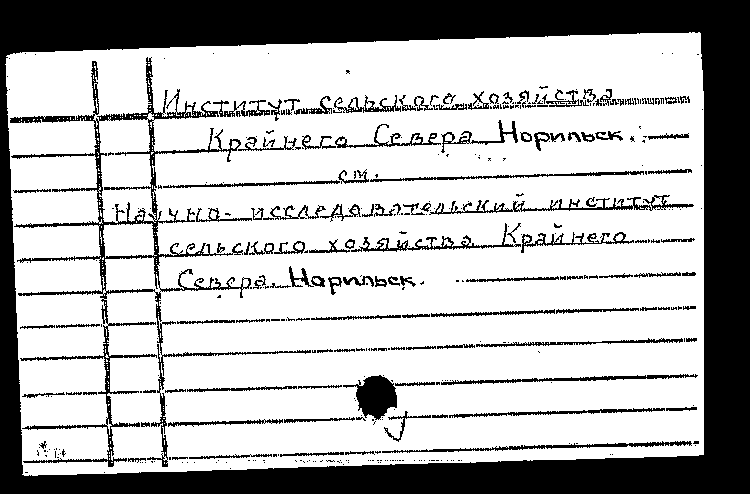 Институт сельского хозяйства
Крайнего Севера. Норильск.
см.
Научно-исследовательский институт
сельского хозяйства Крайнего
Севера. Норильск.